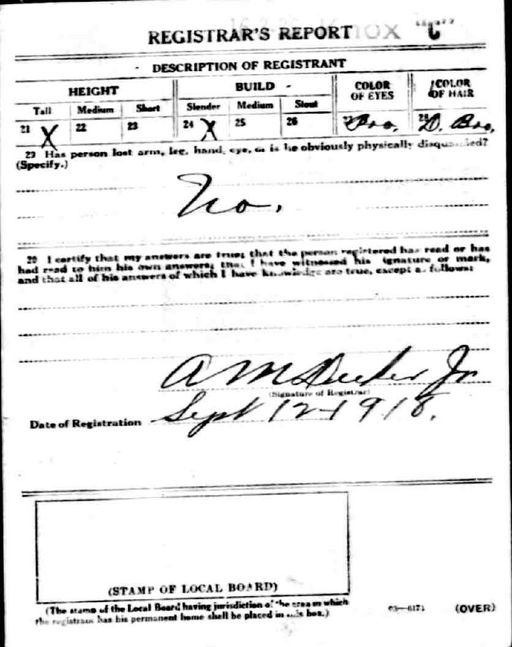 REGISTRAR'S REPORT
DESCRIPTION OF REGISTRANT
HEIGHT BUILD COLOR OF EYES COLOR OF HAIR
Tall Medium Short Slender Medium Stout
21 X 22 23 24 X 25 26 27 Bro. 28 D. Bro.
29 Has person lost arm, leg, hand, eye, or is he obviously physically disqualified?
(Specify.)
No.
30 I certify that my answers are true; that the person registered has read or has
had read to him his own answers; that I have witnessed his signature or mark,
and that all of his answers of which I have knowledge are true, except as follows:
A M Jr
(Signature of Registrar)
Date of Registration Sept 12-1918.
(STAMP OF LOCAL BOARD)
(The stamp of the Local Board having jurisdiction of the area in which
the registrant has his permanent home shall be placed in this box.)
03—6171 (OVER)